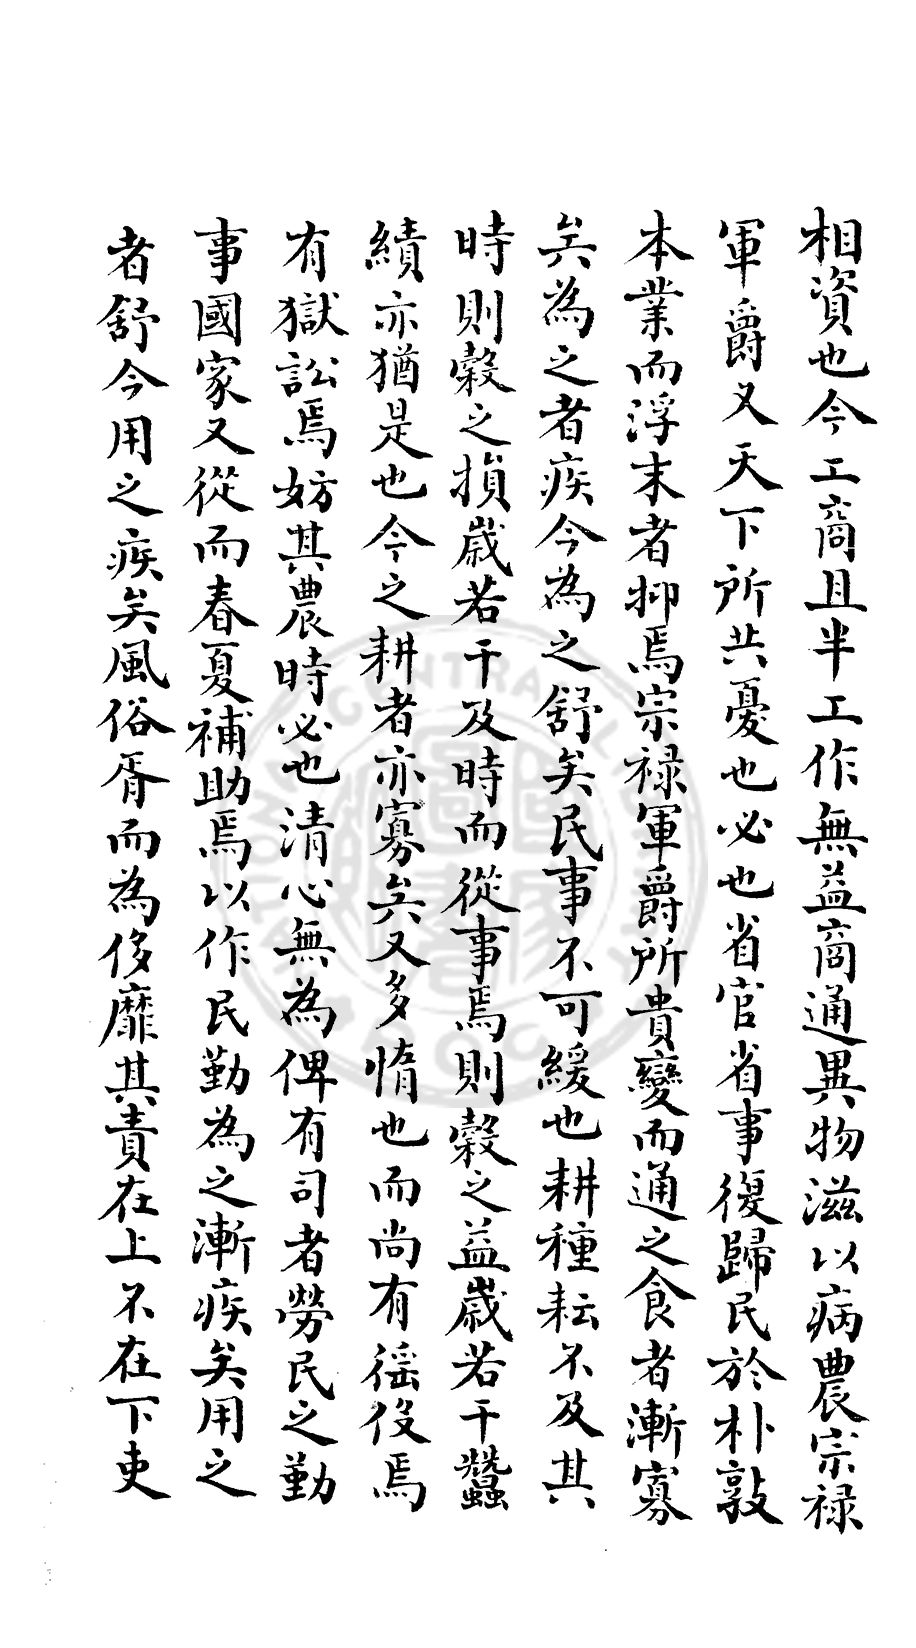 相資也今工商且半工作無益商通異物滋以病農宗祿
軍爵又天下所共憂也必也省官省事復歸民於朴敦
本業而浮末者抑焉宗祿軍爵所貴變而通之食者漸寡
矣為之者疾今為之舒矣民事不可緩也耕種耘不及其
時則穀之損歲若干及時而從事焉則穀之益歲若干蠶
績亦猶是也今之耕者亦寡矣又多惰也而尚有徭役焉
有獄訟焉妨其農時必也清心無為俾有司者勞民之勤
事國家又從而春夏補助焉以作民勤為之漸疾矣用之
者舒今用之疾矣風俗胥而為侈靡其責在上不在下吏